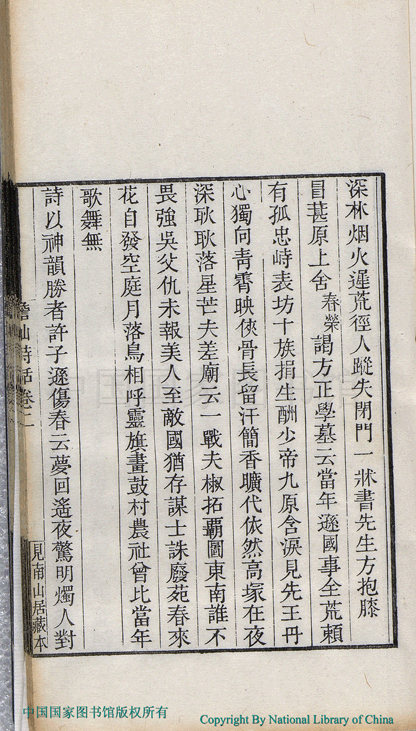 深林烟火遲荒徑人蹤失閉門一牀書先生方抱膝
冒葚原上舍春榮謁方正學墓云當年遜國事全荒賴
有孤忠峙表坊十族捐生酬少帝九原含淚見先王丹
心獨向青霄映俠骨長留汗簡香曠代依然高塚在夜
深耿耿落星芒夫差廟云一戰夫椒拓霸圖東南誰不
畏強吳父仇未報美人至敵國猶存謀士誅廢苑春來
花自發空庭月落鳥相呼靈旗畫鼓村農社曾比當年
歌舞無
詩以神韻勝者許子遜傷春云夢回遙夜驚明燭人對
仙詩話卷
見南山居藏本
中国国家图书馆版权所有
Copyright By National Library of China